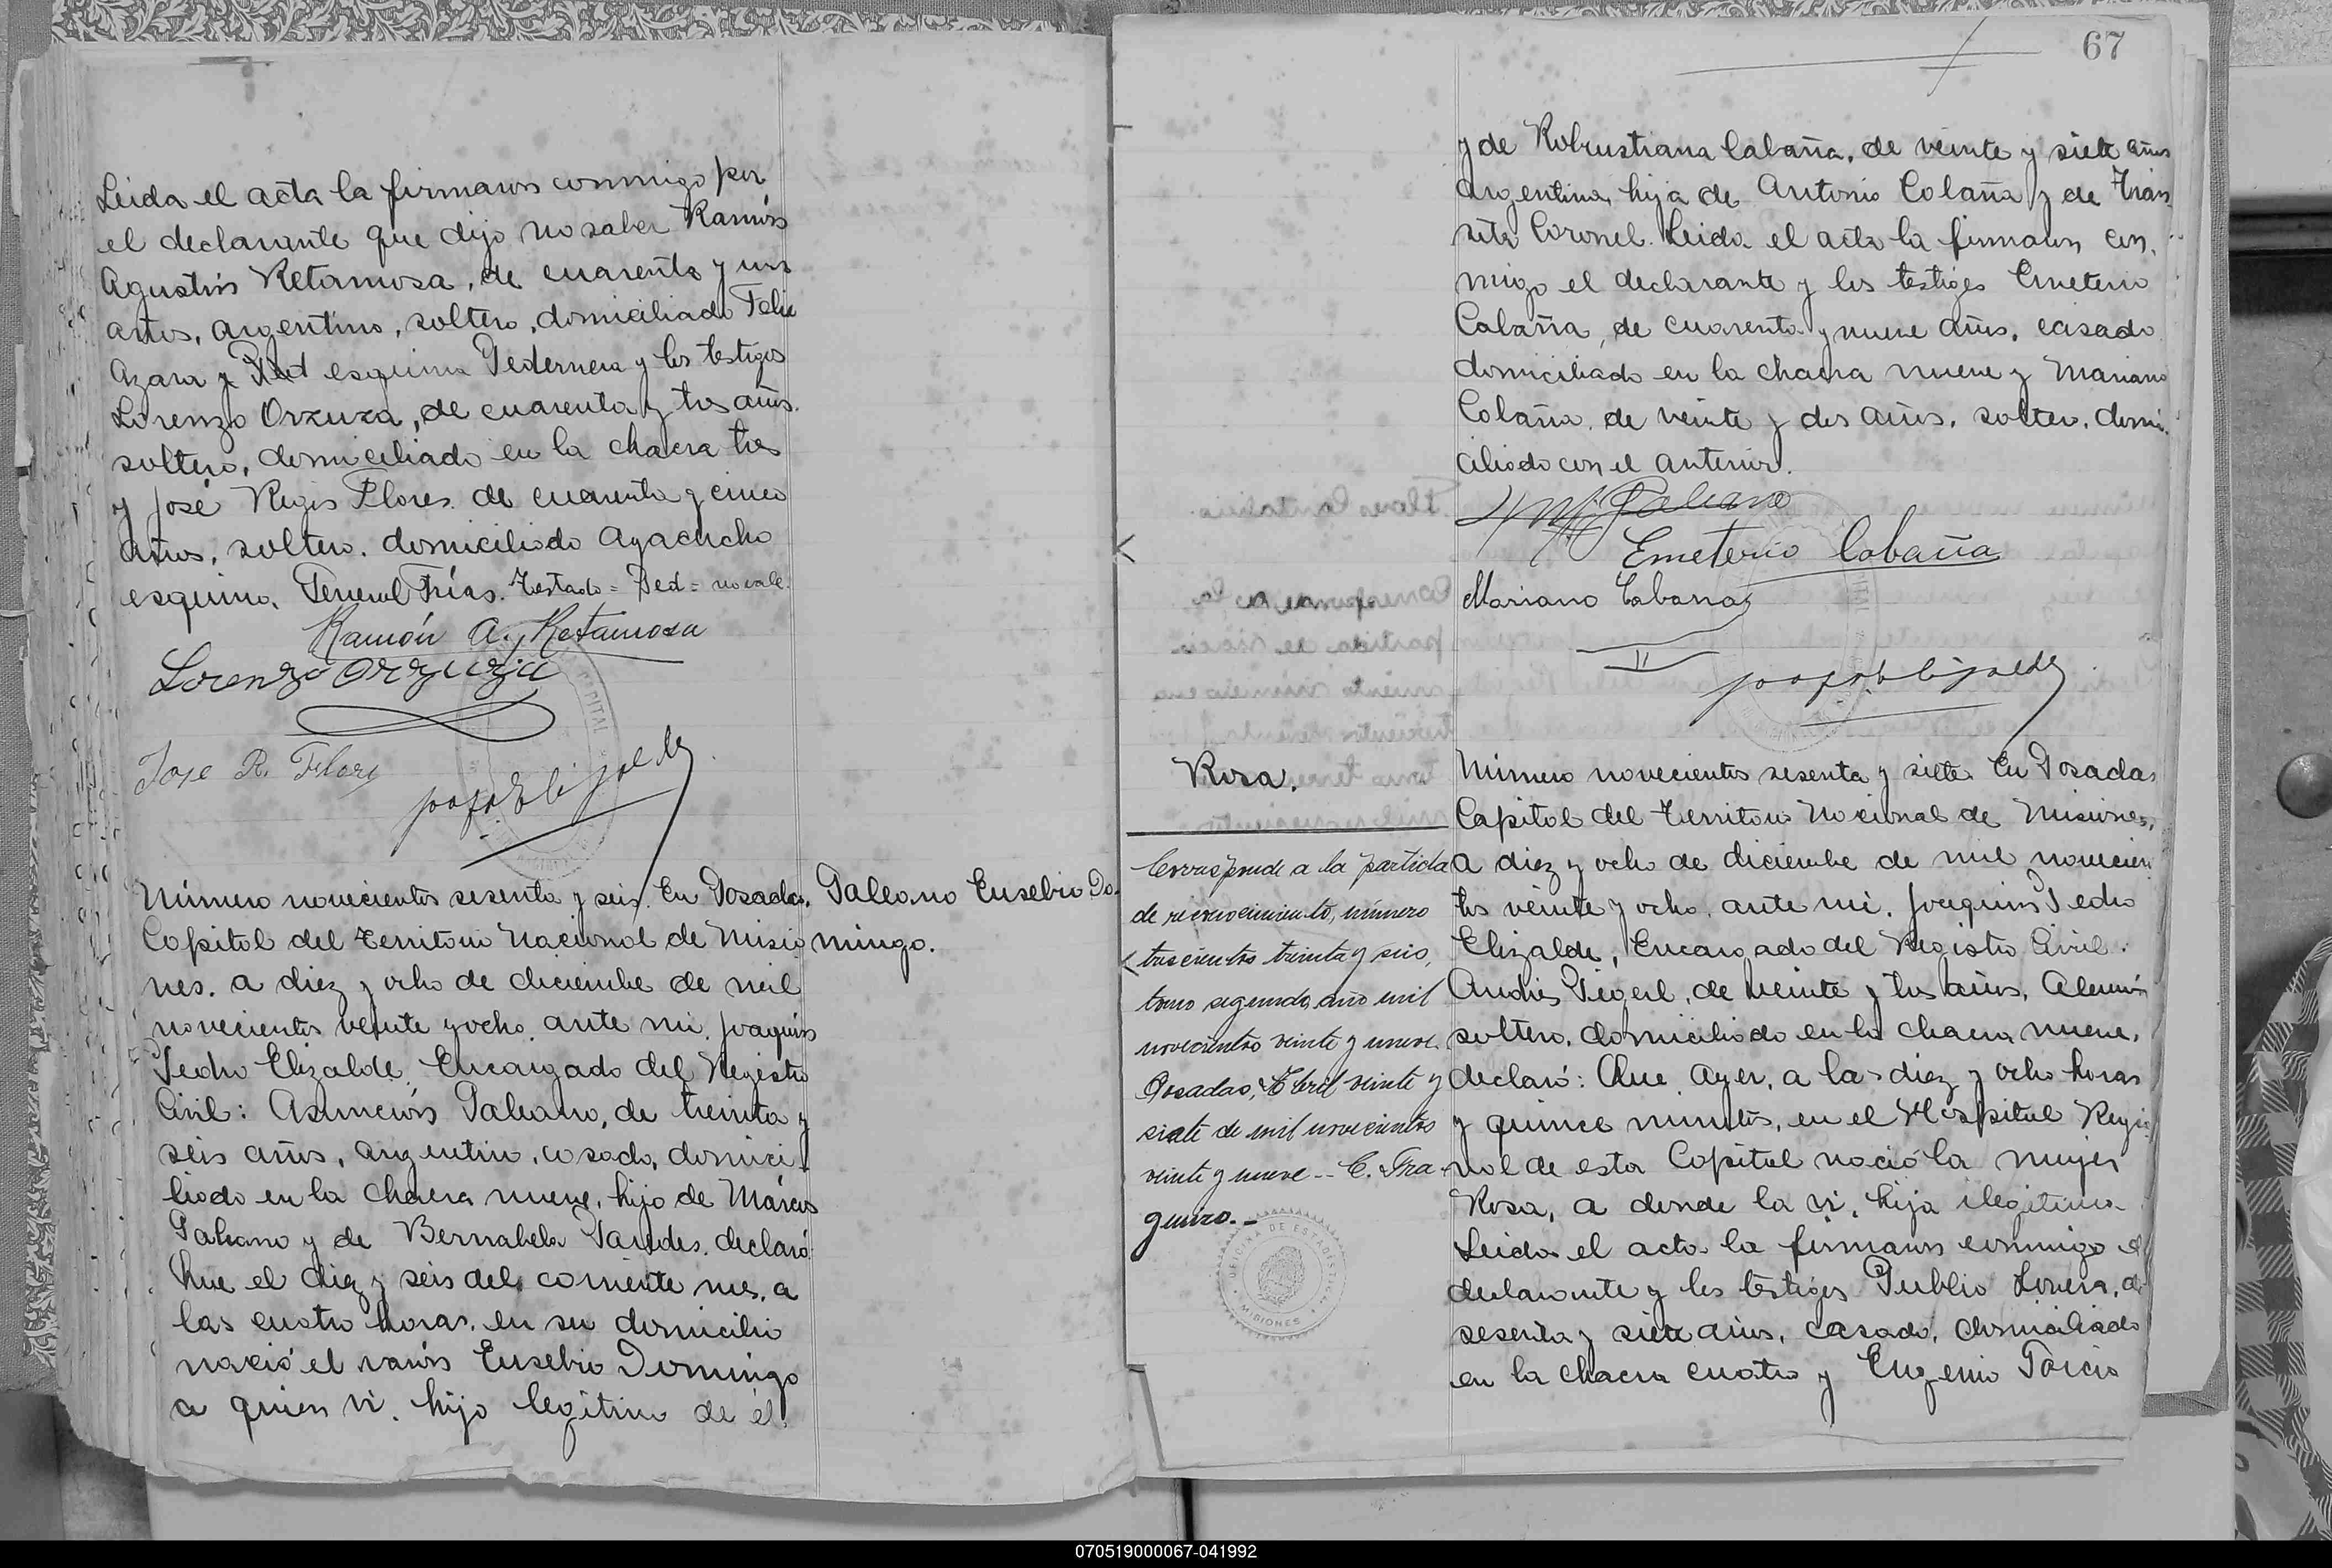 Leida el acta la firmaron conmigo por
el declarante que dijo no saber Ramón
Agustín Retamosa, de cuarenta y un
años, argentino, soltero, domiciliado Felix
Azara y esquina Pedernera y los testigos
Lorenzo Orzuza, de cuarenta y tres años,
soltero, domiciliado en la chacra tres
y José Regis Flores, de cuarenta y cinco
años, soltero, domiciliado Ayacucho
esquina General Frías. Testado = Ped = no vale.
Ramón A. Retamosa
Lorenzo Orzuza
Jose R. Flores
Número novecientos sesenta y seis. En Posadas,
Capital del Territorio Nacional de Misio
nes, a diez y ocho de diciembre de mil
novecientos veinte y ocho, ante mi, Joaquín
Pedro Elizalde, Encargado del Registro
Civil: Asunción Galeano, de treinta y
seis años, argentino, casado, domici-
liado en la chacra nueve, hijo de Márcos
Galeano y de Bernabela declaró:
Que el diez y seis del corriente mes, a
las cuatro horas, en su domicilio
nació el varón Eusebio Domingo
a quien vi, hijo legítimo de él
Galeano Eusebio Do-
mingo.
67
y de Robustiana Cabaña, de veinte y siete años
argentina, hija de Antonio Cabaña y de Trán
sito Coronel. Leida el acta la firmaron con-
migo el declarante y los testigos Emeterio
Cabaña, de cuarenta y nueve años, casado
domiciliado en la chacra nueve y Mariano
Cabaña, de veinte y dos años, soltero, domi-
ciliado con el anterior.
Galeano
Emeterio Cabaña
Mariano Cabaña
Rosa.
Corresponde a la partida
de reconocimiento, número
trescientos treinta y seis,
tomo segundo, año mil
novecientos veinte y nueve.
Posadas, Abril veinte y
siete de mil novecientos
veinte y nueve -- C. Fra-
gueiro.-
OFICINA DE ESTADISTICA
MISIONES
Número novecientos sesenta y siete. En Posadas,
Capital del Territorio Nacional de Misiones,
a diez y ocho de diciembre de mil novecien
tos veinte y ocho, ante mi, Joaquín Pedro
Elizalde, Encargado del Registro Civil:
Andrés de veinte y tres años, Alemán
soltero, domiciliado en la chacra nueve,
declaró: Que ayer, a las diez y ocho horas
y quince minutos, en el Hospital Regio
nal de esta Capital nació la mujer
Rosa, a donde la vi, hija ilegitima
Leida el acta la firmaron conmigo el
declarante y los testigos Publio de
sesenta y siete años, casado, domiciliado
en la chacra cuatro y Eugenio García
070519000067-041992